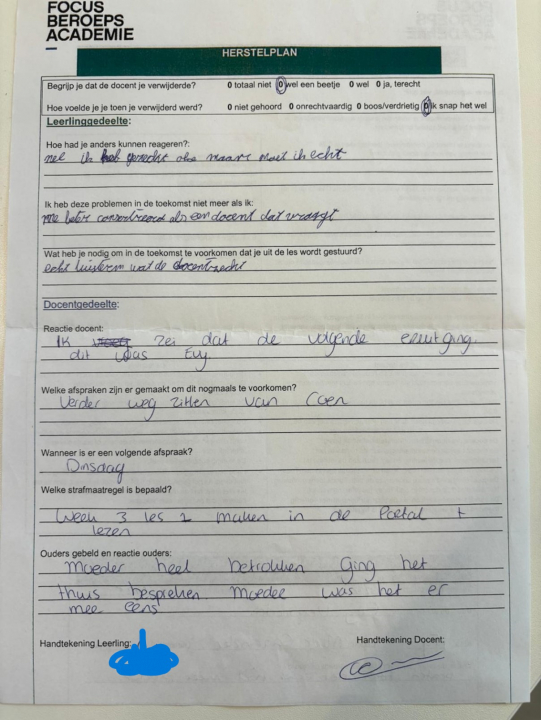 FOCUS
BEROEPS
ACADEMIE
HERSTELPLAN
Begrijp je dat de docent je verwijderde? 0 totaal niet 0 wel een beetje 0 wel 0 ja, terecht
Hoe voelde je je toen je verwijderd werd? 0 niet gehoord 0 onrechtvaardig 0 boos/verdrietig 0 ik snap het wel
Leerlinggedeelte:
Hoe had je anders kunnen reageren?
ik heb moet ik echt
Ik heb deze problemen in de toekomst niet meer als ik:
me beter als een docent dat vraagt
Wat heb je nodig om in de toekomst te voorkomen dat je uit de les wordt gestuurd?
echt luisteren wat de docent
Docentgedeelte:
Reactie docent:
Ik zei dat de volgende eruit ging.
dit was Evy
Welke afspraken zijn er gemaakt om dit nogmaals te voorkomen?
Verder weg zitten van Coen
Wanneer is er een volgende afspraak?
Dinsdag
Welke strafmaatregel is bepaald?
Week 3 les 2 maken in de Portal +
lezen
Ouders gebeld en reactie ouders:
Moeder heel betrokken ging het
thuis bespreken Moeder was het er
mee eens
Handtekening Leerling: Handtekening Docent: